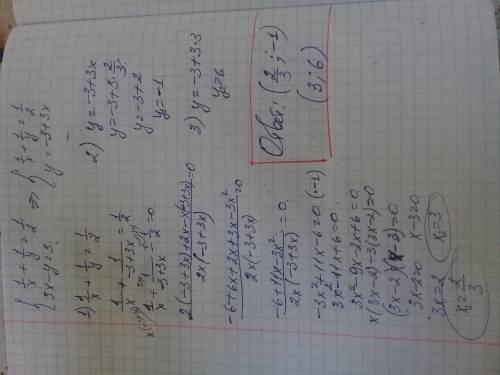 { 1/x + 1/y = 1/2
{ 3x - y = 3.
=> { 1/x + 1/y = 1/2
{ y = -3+3x
1) 1/x + 1/y = 1/2
1/x + 1/(-3+3x) = 1/2
1/x + 1/(-3+3x) - 1/2 = 0.
(2(-3+3x)+2x-x(-3+3x))/(2x(-3+3x)) = 0
(-6+6x+2x+3x-3x²)/(2x(-3+3x)) = 0.
(-6+11x-3x²)/(2x(-3+3x)) = 0.
-3x²+11x-6=0. (·-1)
3x²-11x+6=0.
3x²-9x-2x+6=0.
x(3x-2)-3(3x-2)=0
(3x-2)(x-3)=0.
3x-2=0 x-3=0
3x=2 x₁=3
x₂=2/3
2) y=-3+3x
y=-3+3·2/3.
y=-3+2.
y₁=-1.
3) y=-3+3·3
y₂=6
Ответ: (2/3; -1)
(3; 6)